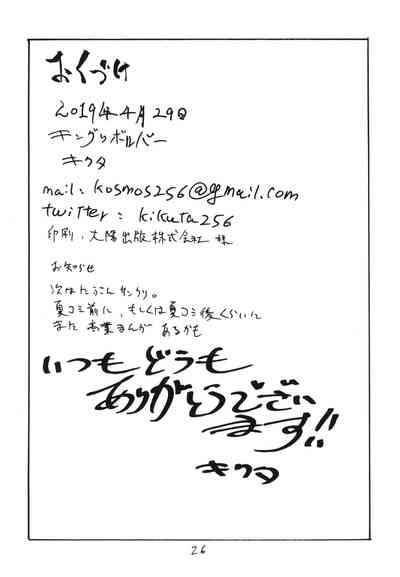 おくづけ
2019年4月29日
キングリボルバー
キクタ
mail: kosmos256@gmail.com
twitter: kikuta256
印刷:大陽出版株式会社 様
お知らせ
次はたぶんサンクリ。
夏コミ前に、もしくは夏コミ後くらいに
また商業まんが あるかも
いつもどうも
ありがとうでござい
ます!!
キクタ
26